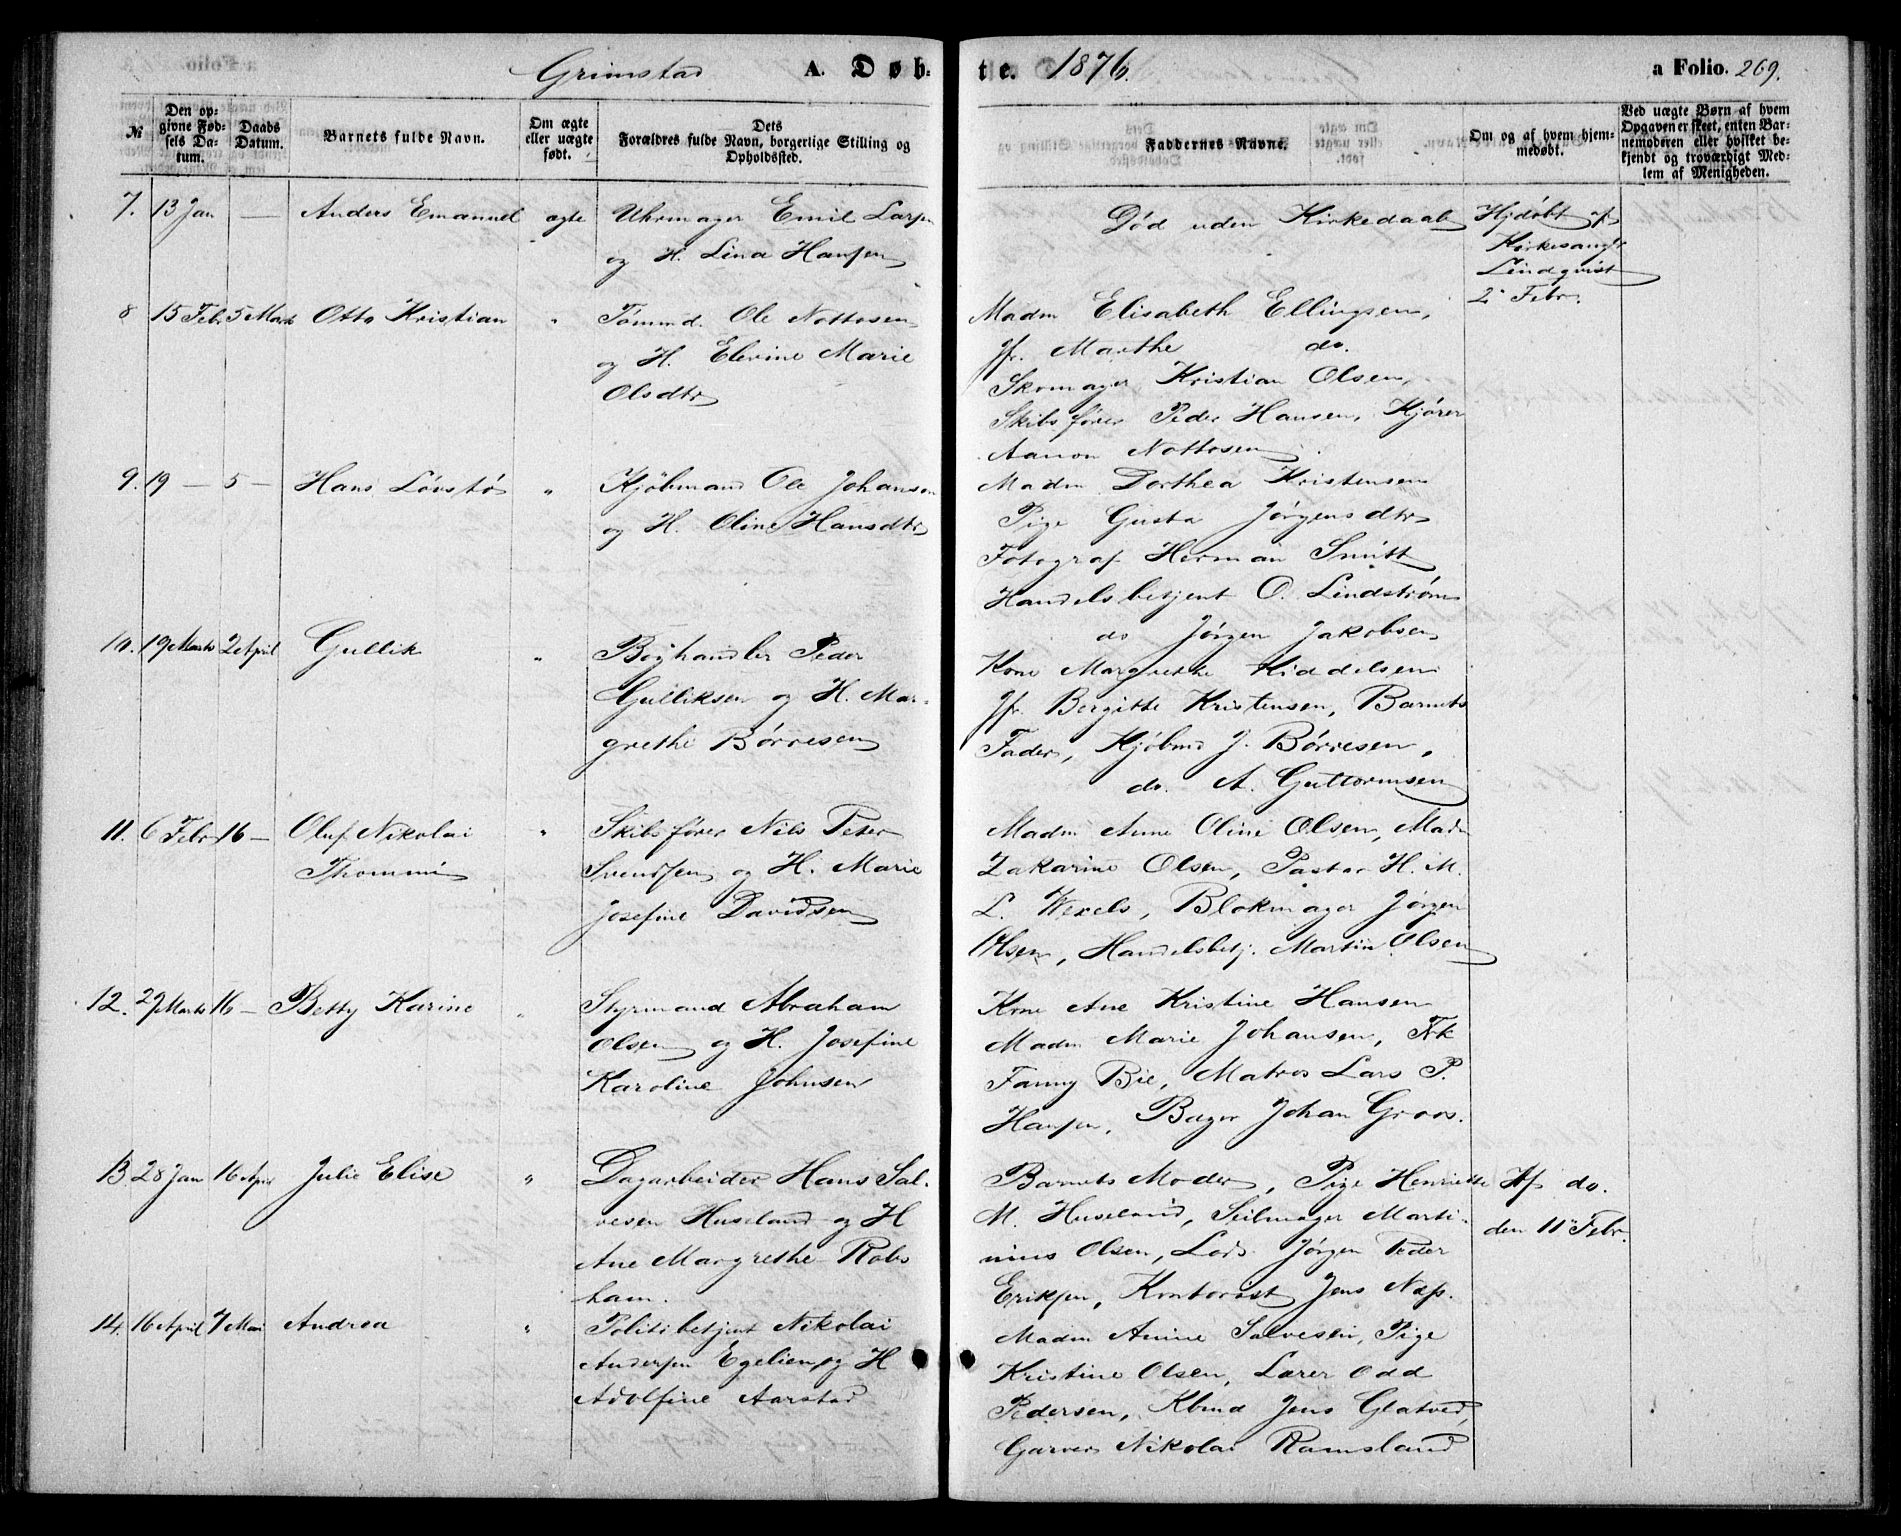 Grimstad A. Døb- te. 1876. a Folio. 269.
№
Den opgivne Fødsels Datum.
Daabs Datum.
Barnets fulde Navn.
Om ægte eller uægte født.
Dets Forældres fulde Navn, borgerlige Stilling og Opholdssted.
Faddernes Navne.
Om og af hvem hjemmedøbt.
Ved uægte Børn af hvem Opgaven er skeet, enten Barnemoderen eller hvilket bekjendt og troværdigt Medlem af Menigheden.
7. 13 Jan — Anders Emanuel ægte Uhrmager Emil Larsen
og H. Lina Hansen
Død uden Kirkedaab
Hjdøbt af
Kirkesanger
Lindqvist
2 Febr.
8 15 Febr 5 Marts Otto Kristian " Tømmd. Ole Nottosen
og H. Elevine Marie
Olsdtr
Madm Elisabeth Ellingsen,
Jfr. Marthe do.
Skomager Kristian Olsen,
Skibsfører Peder Hansen, Kjører
Aanon Nottosen.
9. 19 — 5 — Hans Løvstø " Kjøbmand Ole Johansen
og H. Oline Hansdtr
Madm Dorthea Kristensen
Pige Gusta Jørgensdtr
Fotograf Herman Smitt
Handelsbetjent O. Lindstrøm
do Jørgen Jakobsen
10. 19 Marts 2 April Gullik " Boghandler Peder
Gulliksen og H. Mar-
grethe Børresen
Kone Margrethe Kiddelsen
Jfr. Bergitte Kristensen, Barnets
Fader, Kjøbmd J. Børresen,
do. A. Guttormsen
11. 6 Febr 16 — Oluf Nikolai " Skibsfører Nils Peter
Thommi
Svendsen og H. Marie
Josefine Davidsen
Madm Anne Oline Olsen, Madm
Zakarine Olsen, Pastor H. M.
L. Wexels, Blokmager Jørgen
Olsen, Handelsbetj. Martin Olsen
12. 29 Marts 16 — Betty Karine " Styrmand Abraham
Olsen og H. Josefine
Karoline Johnsen
Kone Ane Kristine Hansen
Madm Marie Johansen, Frk
Fanny Bie, Matros Lars P.
Hansen, Bager Johan Groos.
13 28 Jan 16 April Julie Elise " Dagarbeider Hans Sal-
vesen Huseland og H
Ane Margrethe Robs
ham.
Barnets Moder, Pige Henriette
M. Huseland, Seilmager Marti-
nius Olsen, Lods Jørgen Peder
Eriksen, Kontorist Jens Næss.
Af do.
den 11 Febr.
14. 16 April 7 Mai Andrea " Politibetjent Nikolai
Andersen Egelien, og H
Adolfine Aarstad
Madm Amine Salvesen, Pige
Kristine Olsen, Lærer Odd
Pedersen, Kbmd Jens Glatved,
Garver Nikolai Ramsland